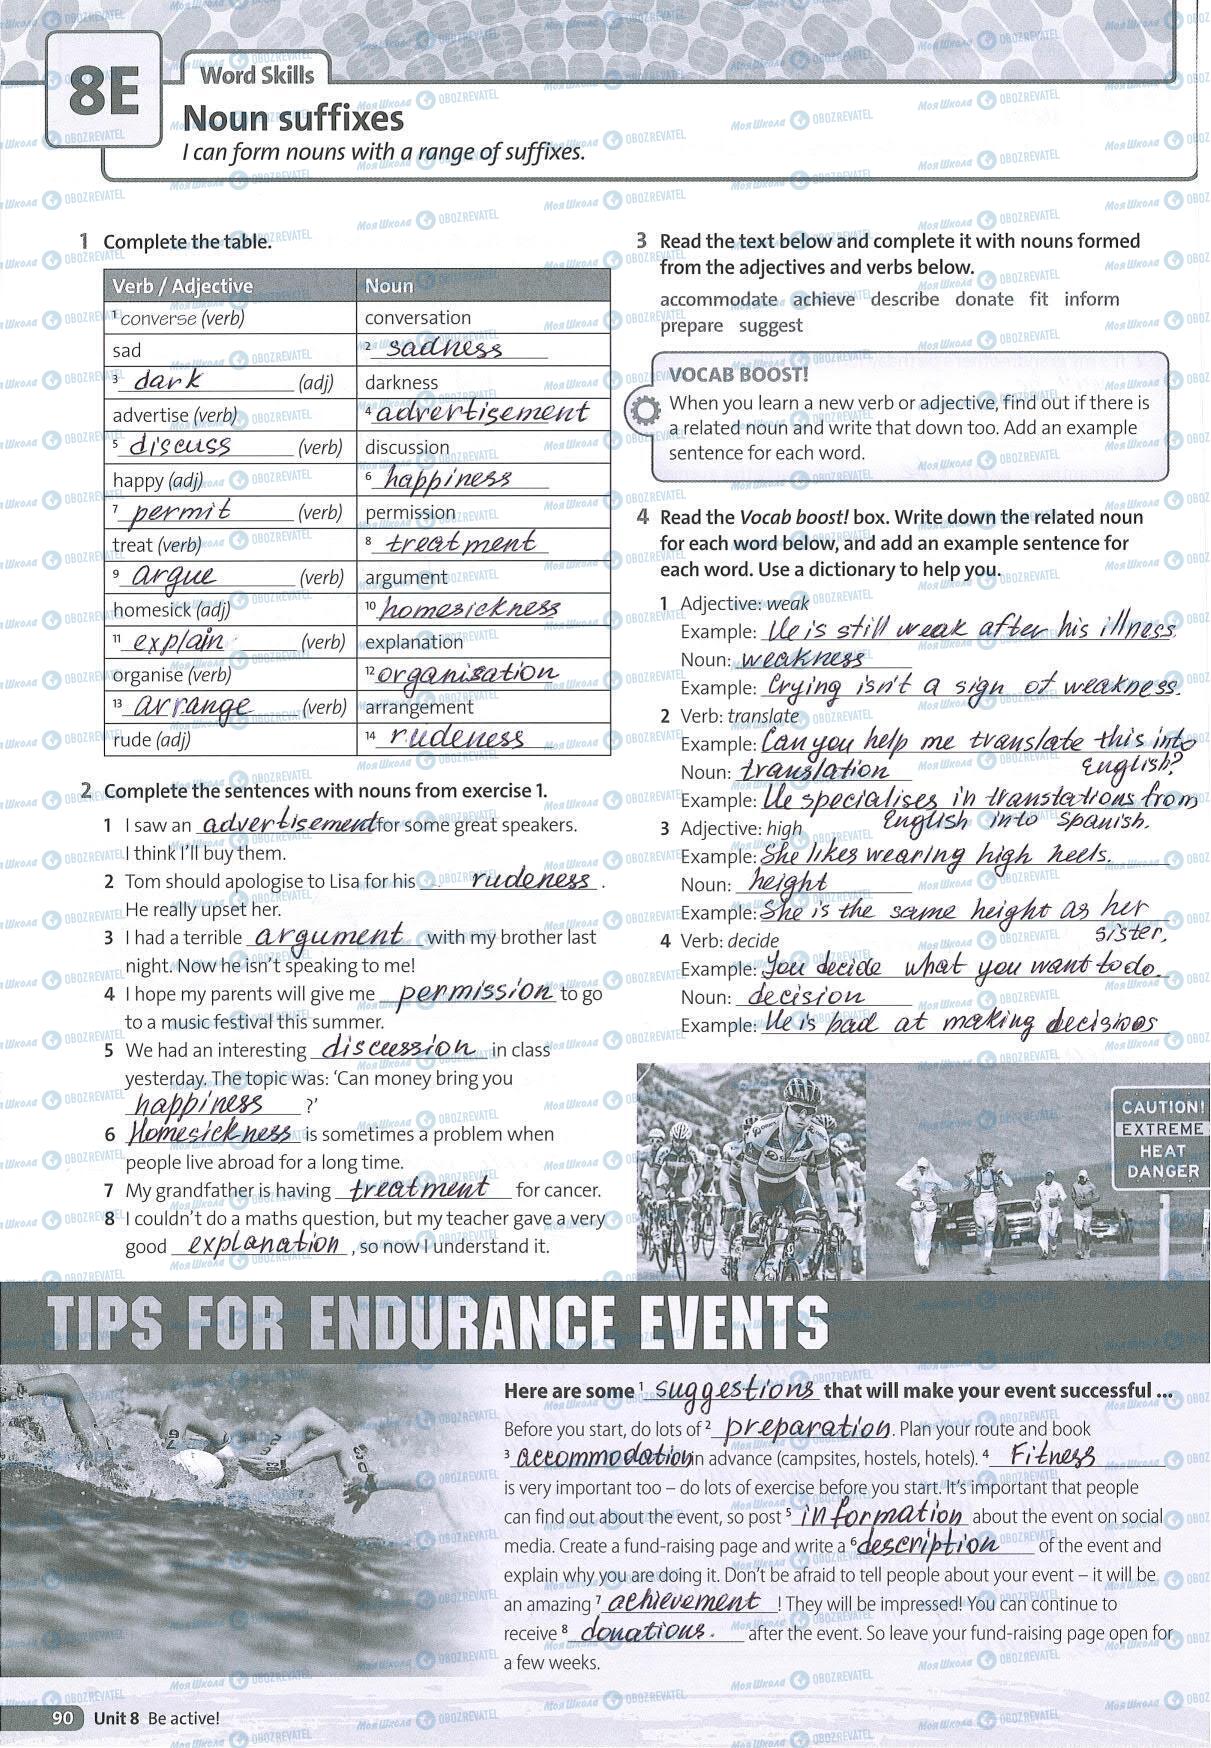 8E
Word Skills
Noun suffixes
I can form nouns with a range of suffixes.
1 Complete the table.
Verb / Adjective Noun
1 converse (verb) conversation
sad 2 sadness
3 dark (adj) darkness
advertise (verb) 4 advertisement
5 discuss (verb) discussion
happy (adj) 6 happiness
7 permit (verb) permission
treat (verb) 8 treatment
9 argue (verb) argument
homesick (adj) 10 homesickness
11 explain (verb) explanation
organise (verb) 12 organisation
13 arrange (verb) arrangement
rude (adj) 14 rudeness
2 Complete the sentences with nouns from exercise 1.
1 I saw an advertisement for some great speakers.
I think I'll buy them.
2 Tom should apologise to Lisa for his rudeness .
He really upset her.
3 I had a terrible argument with my brother last
night. Now he isn't speaking to me!
4 I hope my parents will give me permission to go
to a music festival this summer.
5 We had an interesting discussion in class
yesterday. The topic was: 'Can money bring you
happiness ?'
6 Homesickness is sometimes a problem when
people live abroad for a long time.
7 My grandfather is having treatment for cancer.
8 I couldn't do a maths question, but my teacher gave a very
good explanation , so now I understand it.
3 Read the text below and complete it with nouns formed
from the adjectives and verbs below.
accommodate achieve describe donate fit inform
prepare suggest
VOCAB BOOST!
When you learn a new verb or adjective, find out if there is
a related noun and write that down too. Add an example
sentence for each word.
4 Read the Vocab boost! box. Write down the related noun
for each word below, and add an example sentence for
each word. Use a dictionary to help you.
1 Adjective: weak
Example: He is still weak after his illness.
Noun: weakness
Example: Crying isn't a sign of weakness.
2 Verb: translate
Example: Can you help me translate this into
English?
Noun: translation
Example: He specialises in translations from
English into Spanish.
3 Adjective: high
Example: She likes wearing high heels.
Noun: height
Example: She is the same height as her
sister.
4 Verb: decide
Example: You decide what you want to do.
Noun: decision
Example: He is bad at making decisions
CAUTION!
EXTREME
HEAT
DANGER
TIPS FOR ENDURANCE EVENTS
Here are some 1 suggestions that will make your event successful ...
Before you start, do lots of 2 preparation. Plan your route and book
3 accommodation in advance (campsites, hostels, hotels). 4 Fitness
is very important too – do lots of exercise before you start. It's important that people
can find out about the event, so post 5 information about the event on social
media. Create a fund-raising page and write a 6 description of the event and
explain why you are doing it. Don't be afraid to tell people about your event – it will be
an amazing 7 achievement ! They will be impressed! You can continue to
receive 8 donations. after the event. So leave your fund-raising page open for
a few weeks.
90 Unit 8 Be active!
МояШкола OBOZREVATEL